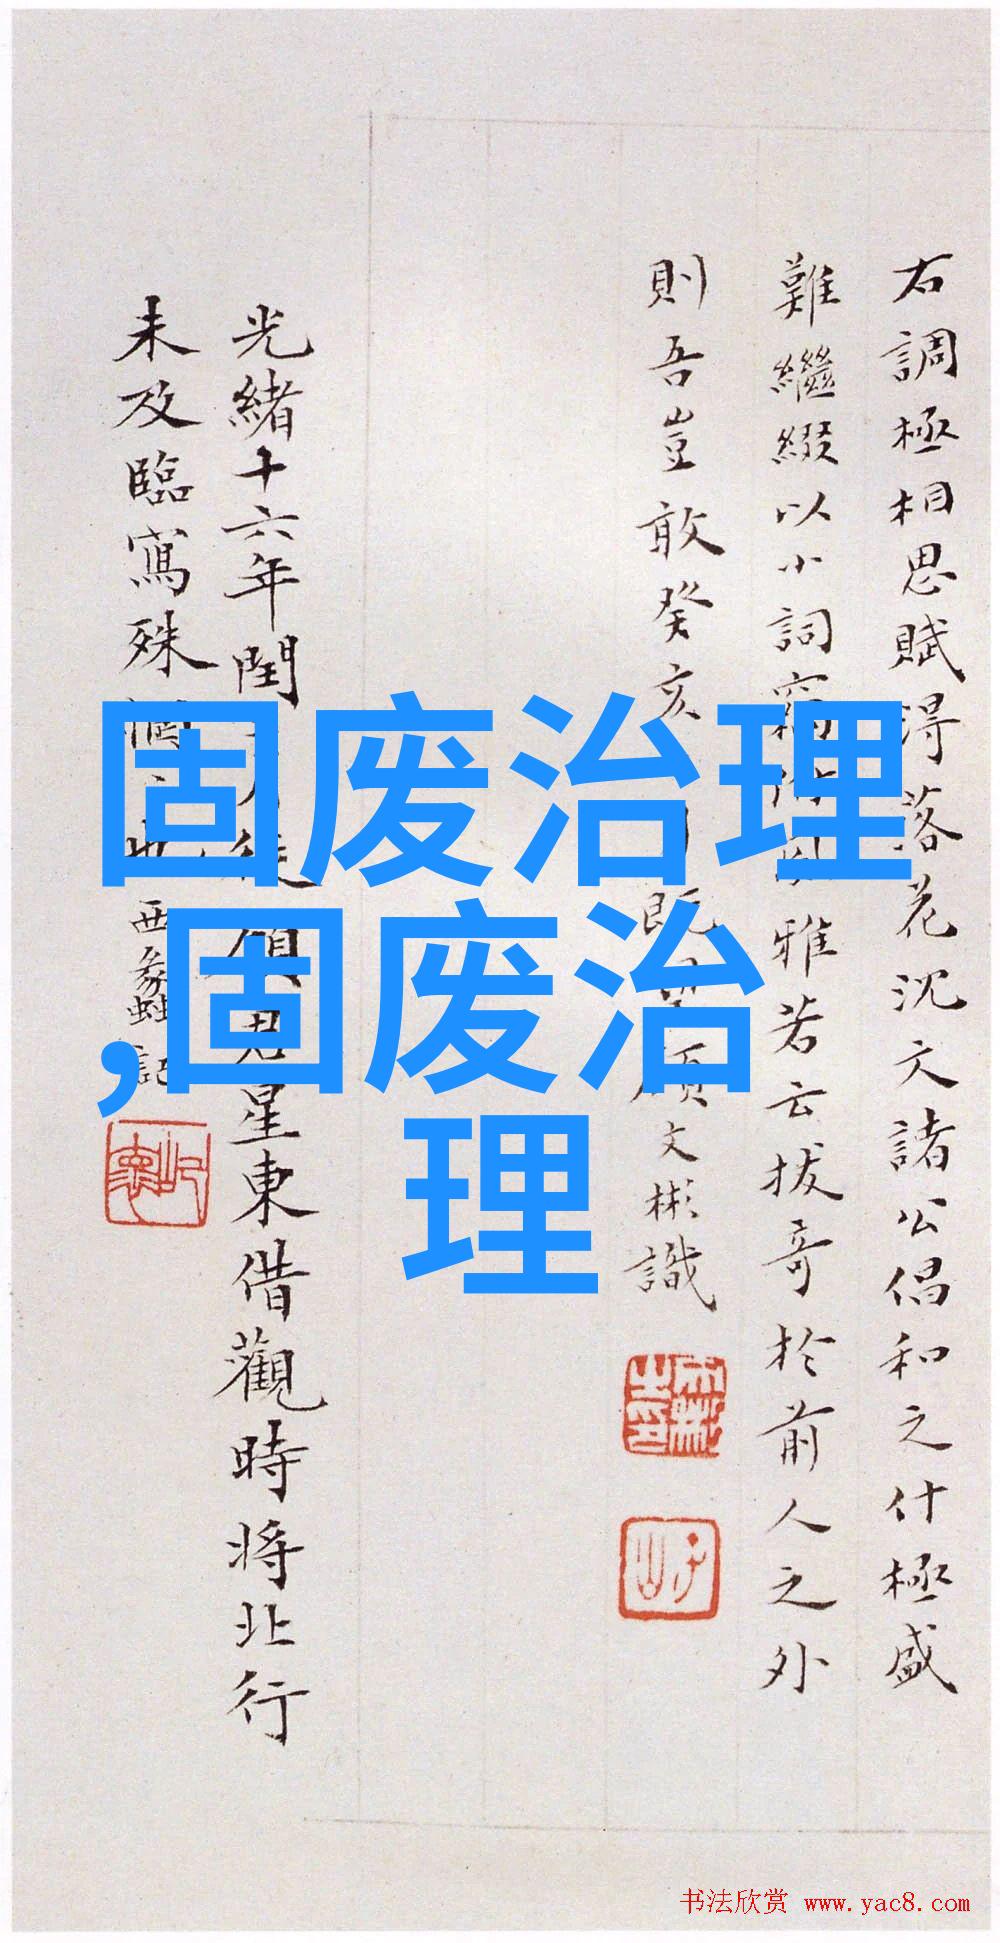 右調極相思賦得落花沈文諸公倡和之什極盛
難繼綴以小詞竊附風雅若云拔奇於前人之外
則吾豈敢癸亥 既望顧文彬識
光緒十六年閏 月從顧兄星東借觀時將北行
未及臨寫殊悵 也西蠡記
固废治理
,固废治
理
书法欣赏 www.yac8.com